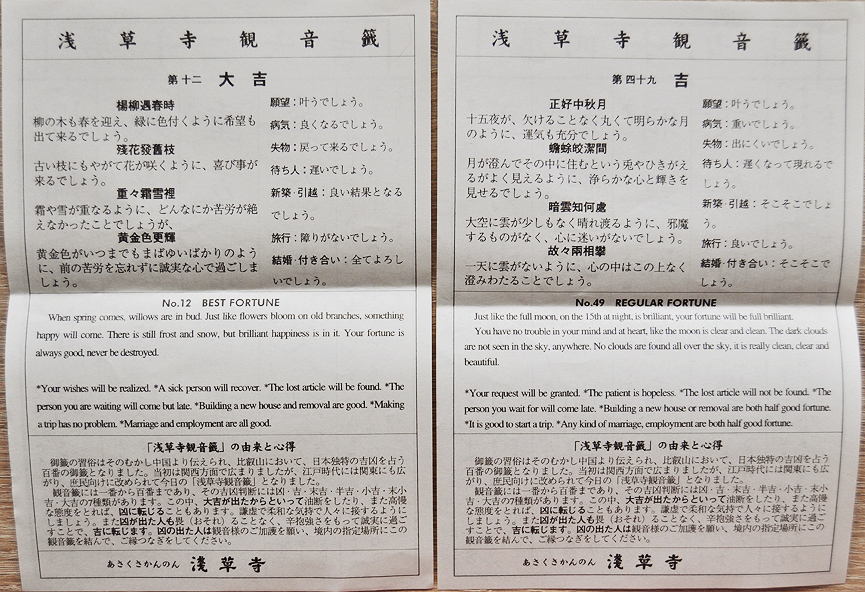 浅草寺観音籤
第十二 大吉
楊柳遇春時
柳の木も春を迎え、緑に色付くように希望も
出て来るでしょう。
残花發舊枝
古い枝にもやがて花が咲くように、喜び事が
来るでしょう。
重々霜雪裡
霜や雪が重なるように、どんなにか苦労が絶
えなかったことでしょうが、
黄金色更輝
黄金色がいつまでもまばゆいばかりのよう
に、前の苦労を忘れずに誠実な心で過ごしま
しょう。
願望：叶うでしょう。
病気：良くなるでしょう。
失物：戻って来るでしょう。
待ち人：遅いでしょう。
新築・引越：良い結果となる
でしょう。
旅行：障りがないでしょう。
結婚・付き合い：全てよろし
いでしょう。
No.12 BEST FORTUNE
When spring comes, willows are in bud. Just like flowers bloom on old branches, something
happy will come. There is still frost and snow, but brilliant happiness is in it. Your fortune is
always good, never be destroyed.
*Your wishes will be realized. *A sick person will recover. *The lost article will be found. *The
person you are waiting will come but late. *Building a new house and removal are good. *Making
a trip has no problem. *Marriage and employment are all good.
「浅草寺観音籤」の由来と心得
御籤の習俗はそのむかし中国より伝えられ、比叡山において、日本独特の吉凶を占う
百番の御籤となりました。当初は関西方面で広まりましたが、江戸時代には関東にも広
がり、庶民向けに改められて今日の「浅草寺観音籤」となりました。
観音籤には一番から百番まであり、その吉凶判断には凶・吉・末吉・半吉・小吉・末小
吉・大吉の7種類があります。この中、大吉が出たからといって油断をしたり、また高慢
な態度をとれば、凶に転じることもあります。謙虚で柔和な気持で人々に接するように
しましょう。また凶が出た人も畏（おそれ）ることなく、辛抱強さをもって誠実に過ご
すことで、吉に転じます。凶の出た人は観音様のご加護を願い、境内の指定場所にこの
観音籤を結んで、ご縁つなぎをしてください。
あさくさかんのん 淺草寺
浅草寺観音籤
第四十九 吉
正好中秋月
十五夜が、欠けることなく丸くて明らかな月
のように、運気も充分でしょう。
蟾蜍皎潔間
月が澄んでその中に住むという兎やひきがえ
るがよく見えるように、浄らかな心と輝きを
見せるでしょう。
暗雲知何處
大空に雲が少しもなく晴れ渡るように、邪魔
するものがなく、心に迷いがないでしょう。
故々兩相攀
一天に雲がないように、心の中はこの上なく
澄みわたることでしょう。
願望：叶うでしょう。
病気：重いでしょう。
失物：出にくいでしょう。
待ち人：遅くなって現れるで
しょう。
新築・引越：そこそこでしょ
う。
旅行：良いでしょう。
結婚・付き合い：そこそこで
しょう。
No.49 REGULAR FORTUNE
Just like the full moon, on the 15th at night, is brilliant, your fortune will be full brilliant.
You have no trouble in your mind and at heart, like the moon is clear and clean. The dark clouds
are not seen in the sky, anywhere. No clouds are found all over the sky, it is really clean, clear and
beautiful.
*Your request will be granted. *The patient is hopeless. *The lost article will not be found. *The
person you wait for will come late. *Building a new house or removal are both half good fortune.
*It is good to start a trip. *Any kind of marriage, employment are both half good fortune.
「浅草寺観音籤」の由来と心得
御籤の習俗はそのむかし中国より伝えられ、比叡山において、日本独特の吉凶を占う
百番の御籤となりました。当初は関西方面で広まりましたが、江戸時代には関東にも広
がり、庶民向けに改められて今日の「浅草寺観音籤」となりました。
観音籤には一番から百番まであり、その吉凶判断には凶・吉・末吉・半吉・小吉・末小
吉・大吉の7種類があります。この中、大吉が出たからといって油断をしたり、また高慢
な態度をとれば、凶に転じることもあります。謙虚で柔和な気持で人々に接するように
しましょう。また凶が出た人も畏（おそれ）ることなく、辛抱強さをもって誠実に過ご
すことで、吉に転じます。凶の出た人は観音様のご加護を願い、境内の指定場所にこの
観音籤を結んで、ご縁つなぎをしてください。
あさくさかんのん 淺草寺